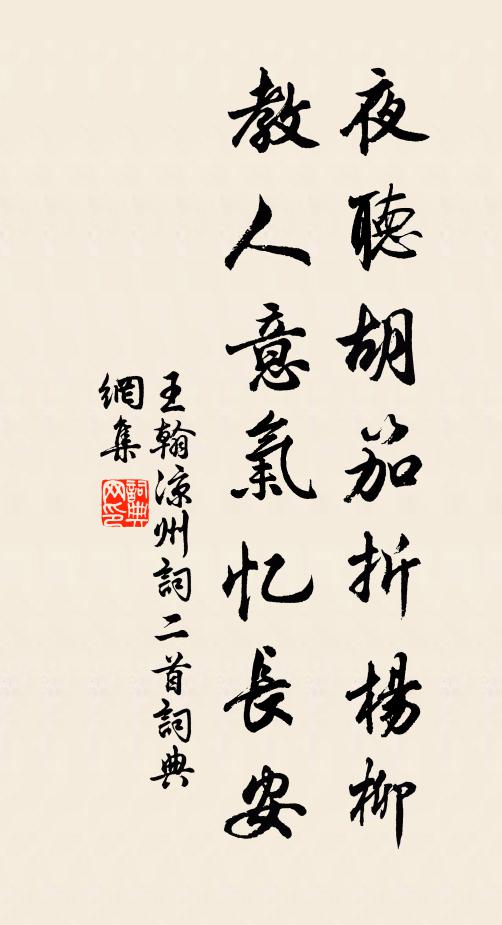 夜聽胡笳折楊柳
教人意氣忆長安
王翰涼州詞二首詞典
網集
詞典
网印